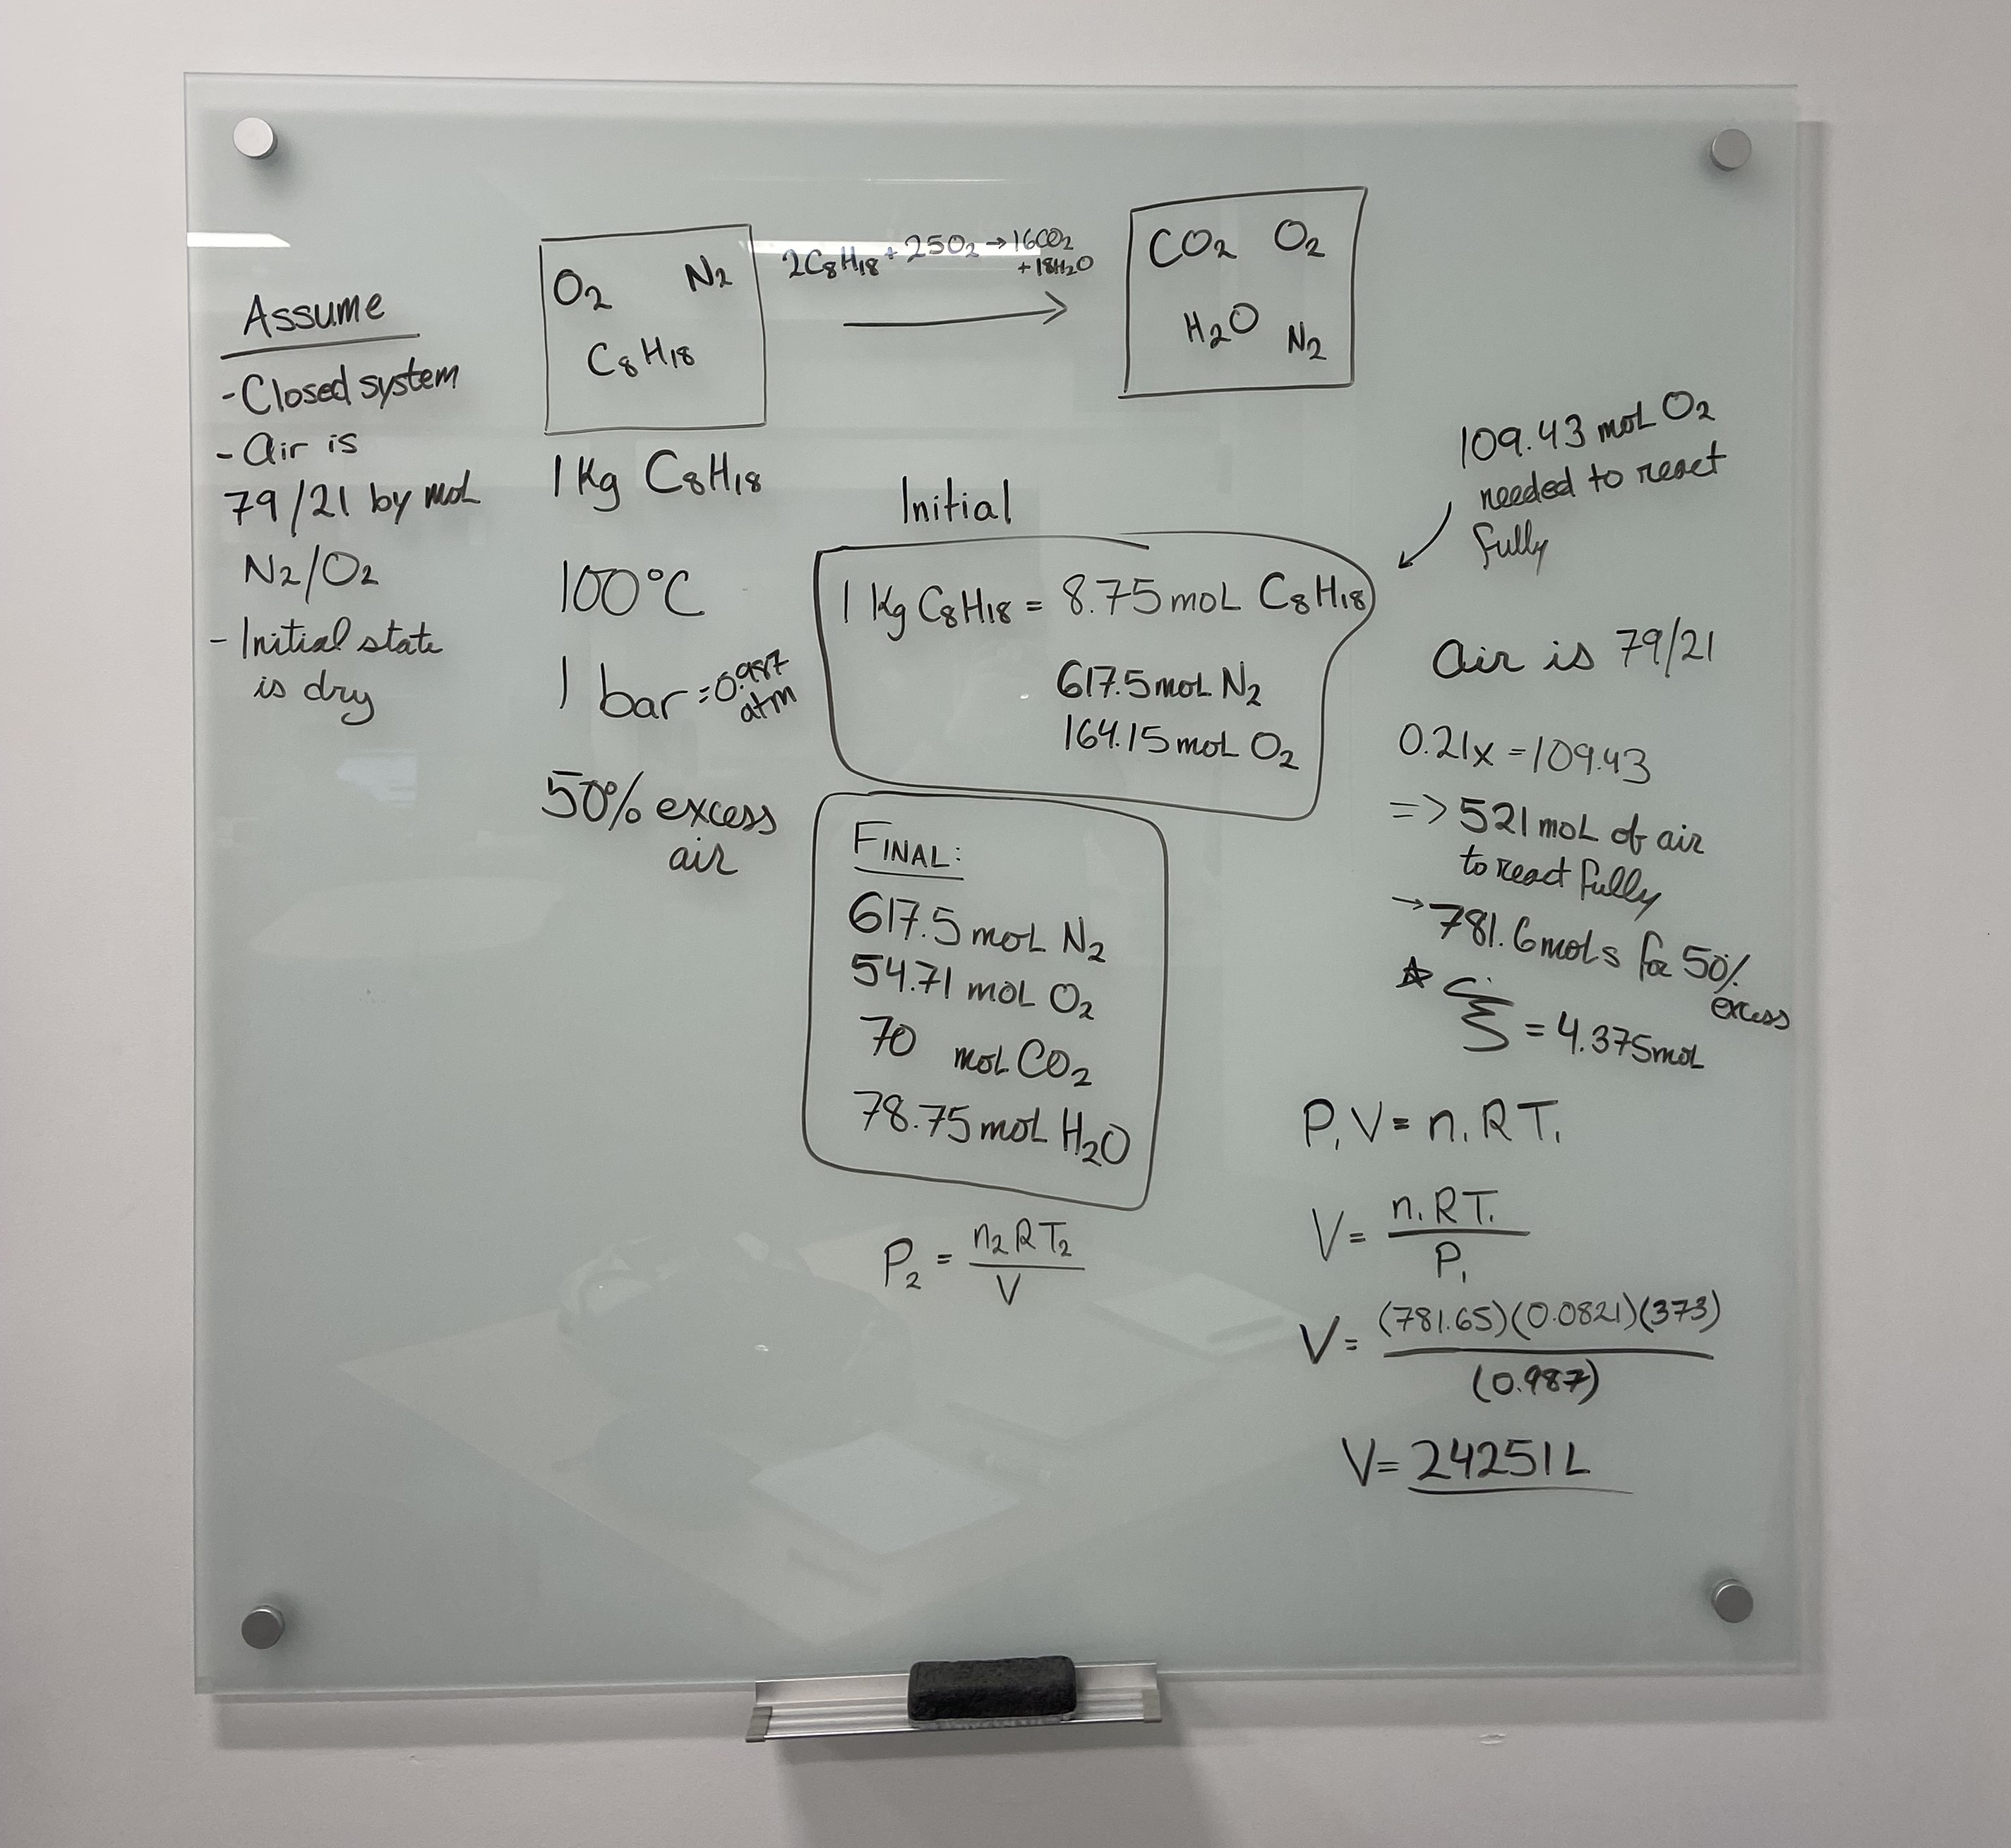 Assume
-Closed system
-Air is
79/21 by mol
N2/O2
-Initial state
is dry
O2 N2
C8H18
2C8H18+25O2→16CO2
+18H2O
CO2 O2
H2O N2
1 Kg C8H18
100°C
1 bar=0.987
atm
50% excess
air
Initial
1 Kg C8H18 = 8.75 mol C8H18
617.5 mol N2
164.15 mol O2
FINAL:
617.5 mol N2
54.71 mol O2
70 mol CO2
78.75 mol H2O
P2 = n2RT2/V
109.43 mol O2
needed to react
fully
Air is 79/21
0.21x=109.43
=>521 mol of air
to react fully
→781.6mols for 50%
excess
☆ ξ = 4.375mol
P1V=n1RT1
V=n1RT1/P1
V=(781.65)(0.0821)(373)/(0.987)
V=24251L